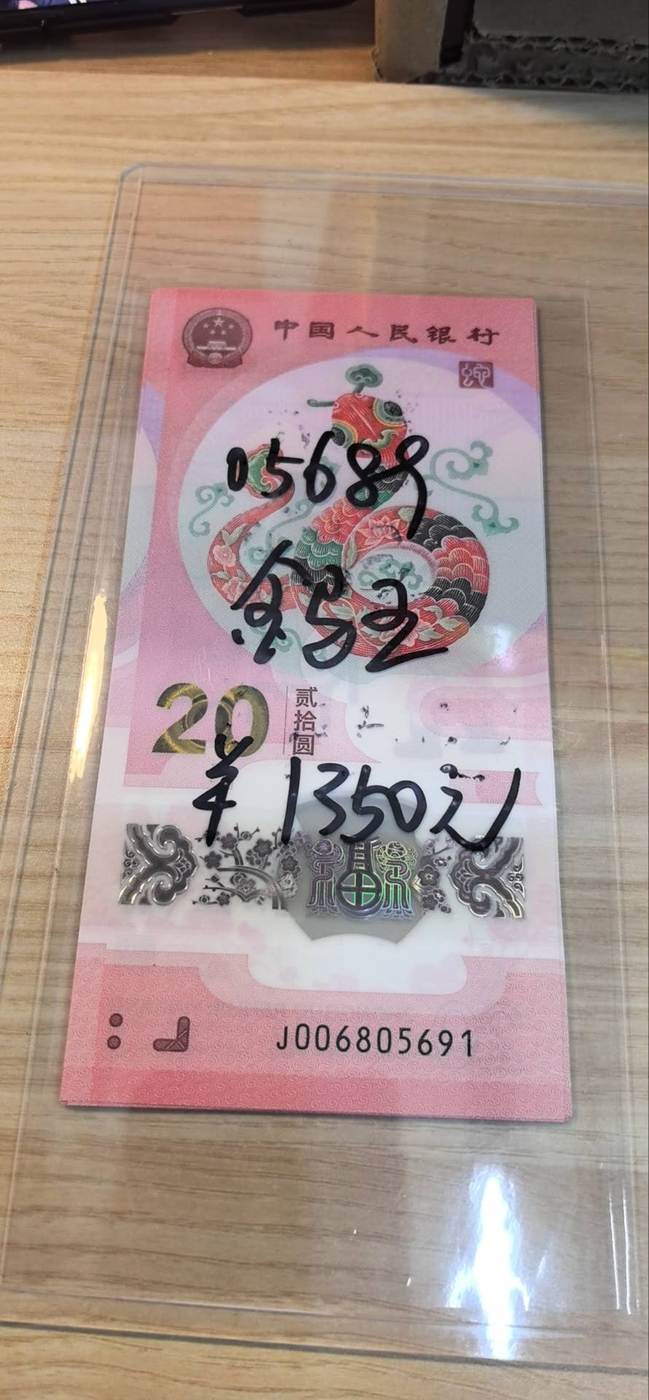 中国人民银行
05689
金马王
20
贰拾圆
￥1350元
福
J006805691